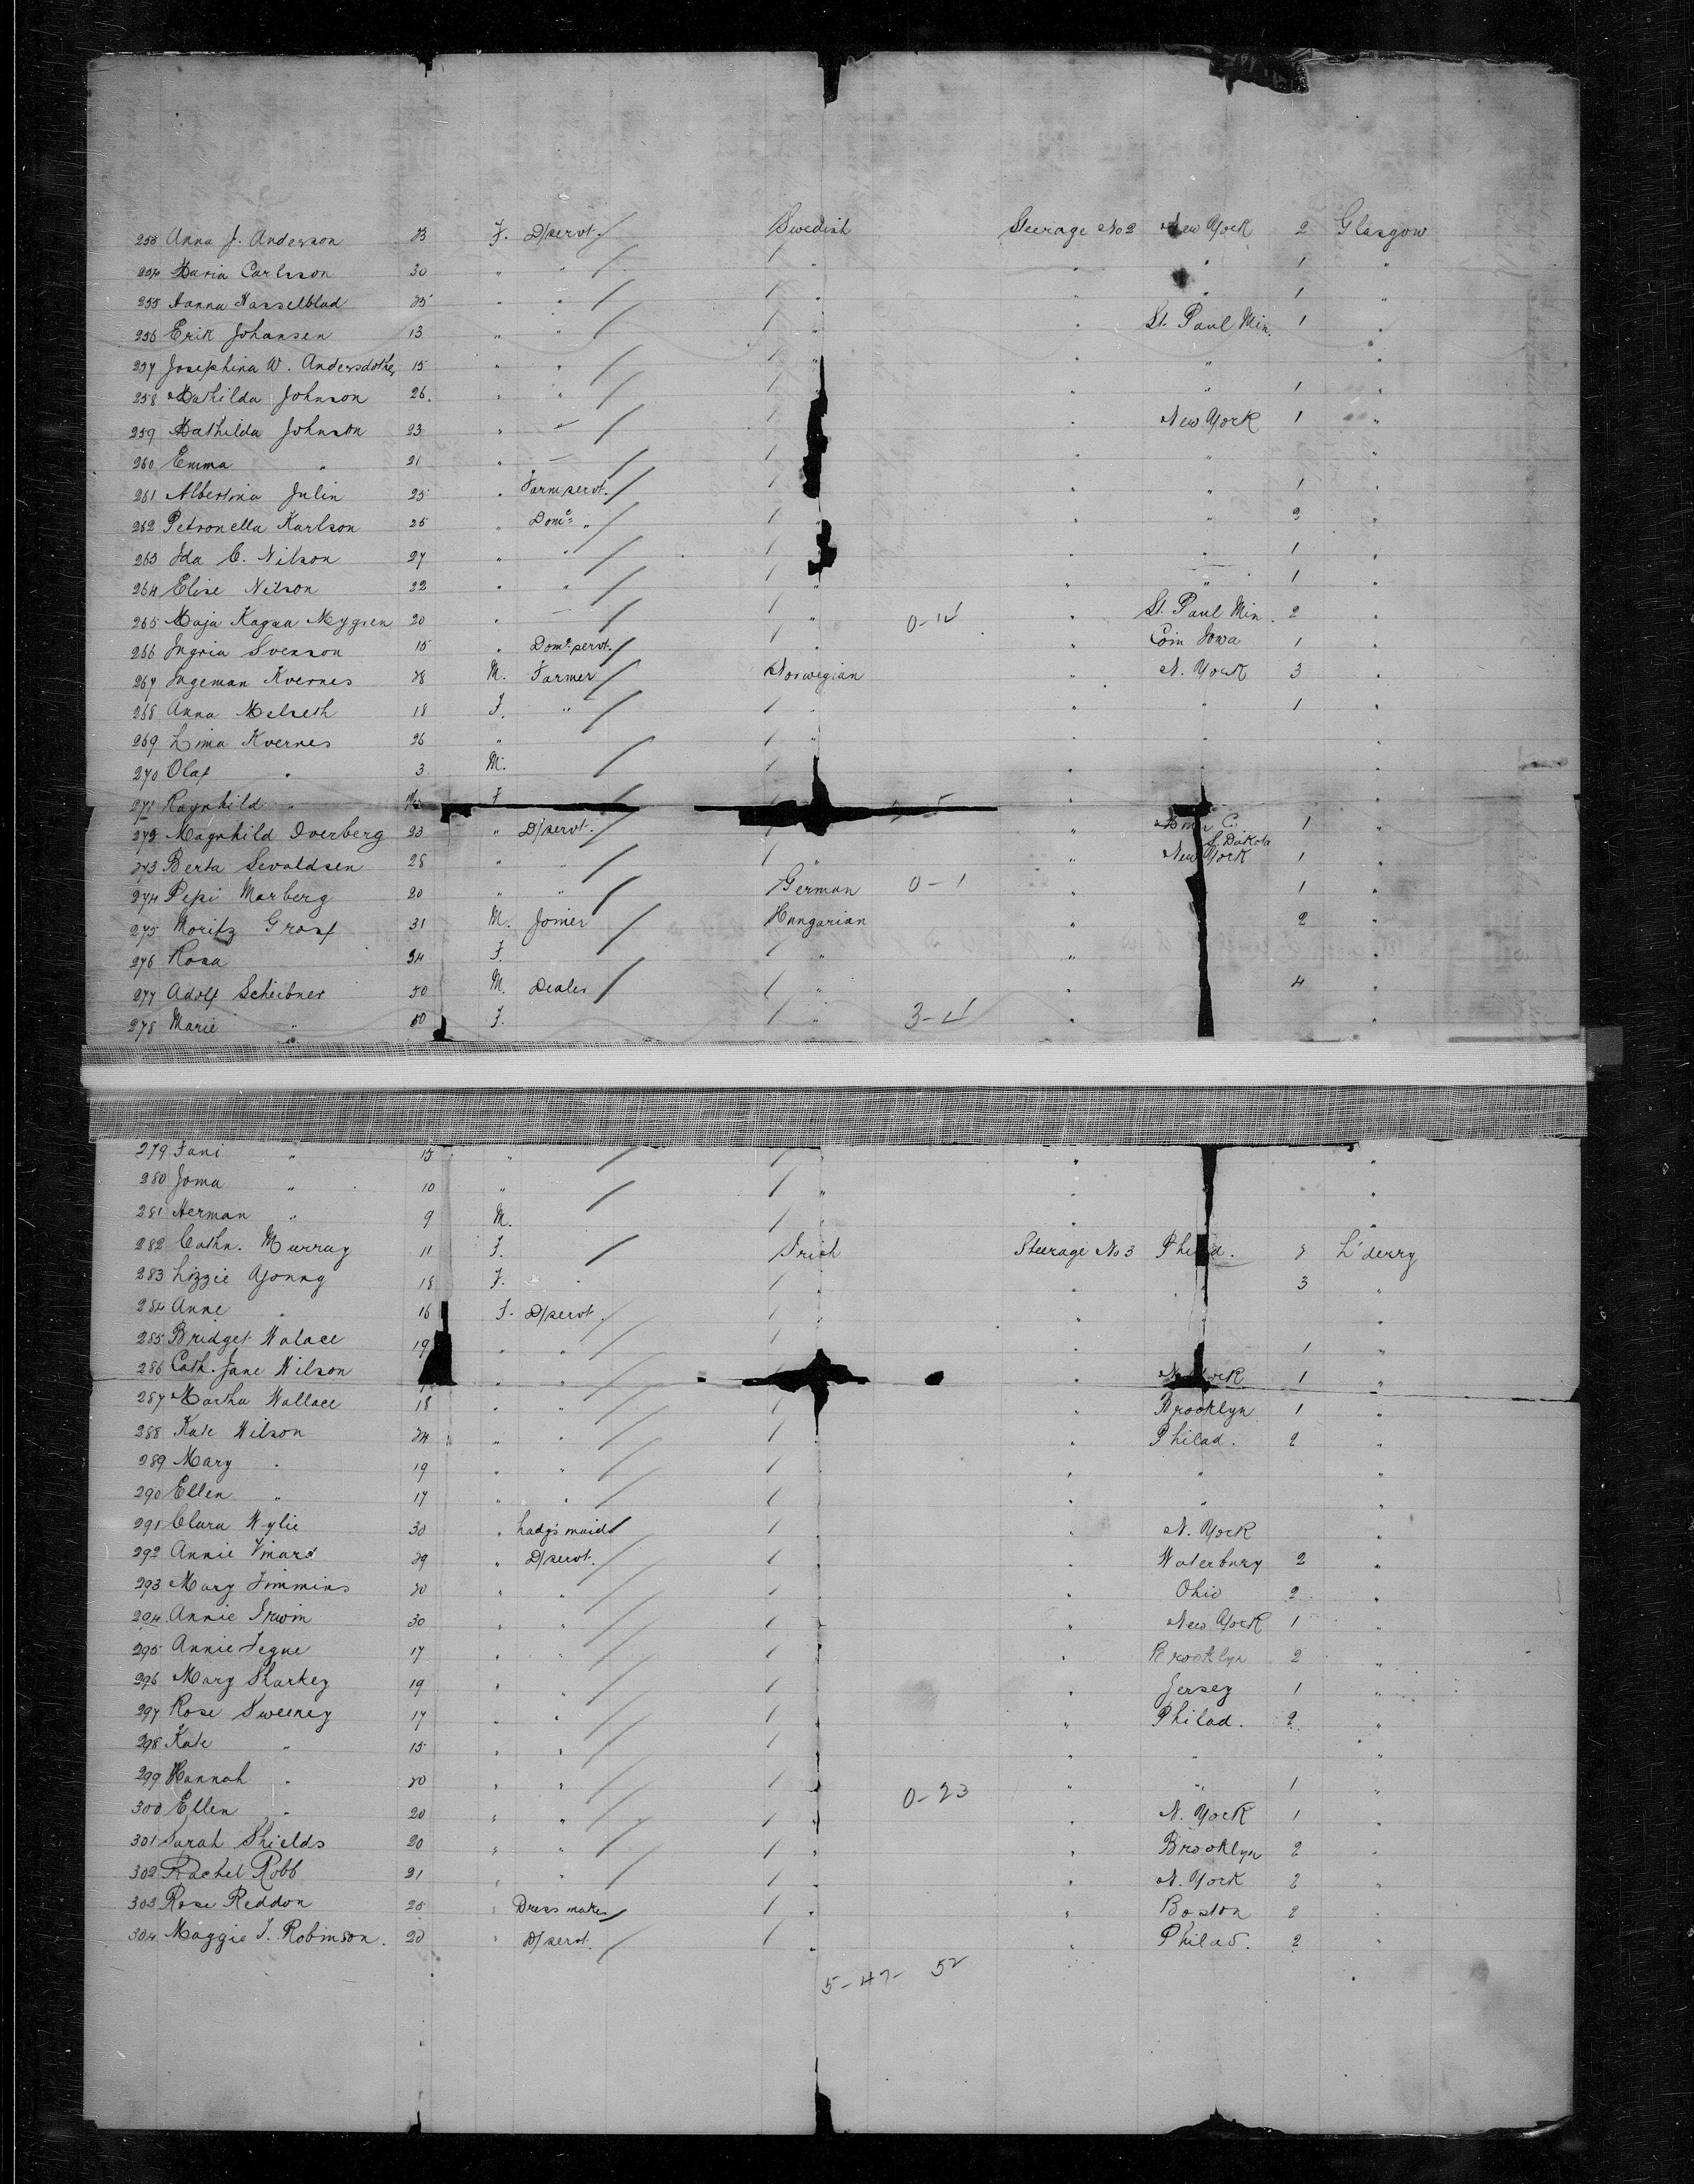 253 Anna J. Anderson 23 F. D/servt. Swedish Steerage No 2 New York 2 Glasgow
254 Maria Carlsson 30 " " " " " 1 "
255 Hanna Hasselblad 25 " " " " " 1 "
256 Erik Johansen 13 " " " " St. Paul Min. 1 "
257 Josephina W. Andersdother 15 " " " " " "
258 Mathilda Johnson 26. " " " " " 1 "
259 Mathilda Johnson 23 " " " New York 1 "
260 Emma " 21 " " " "
261 Albertina Julin 25 " Farm servt. " " " 1 "
262 Petronella Karlson 25 " Domc " " " " 2 "
263 Ida C. Nilson 27 " " " " " 1 "
264 Elise Nilson 22 " " " " " 1 "
265 Maja Kagaa Nygren 20 " " 0-14 " St. Paul Min. 2 "
266 Ingria Svenson 15 " Domc servt. " " Coin Iowa 1 "
267 Ingeman Kvernes 28 M. Farmer Norwegian " N. York 3 "
268 Anna Melseth 18 F. " " " " 1 "
269 Lina Kvernes 26 " " " " "
270 Olaf " 3 M. " "
271 Ragnhild " F " "
272 Magnhild Overberg 23 " D/servt. " S. Dakota 1 "
273 Berta Sevaldsen 28 " " " " New York 1 "
274 Pepi Marberg 20 " " German 0-1 " 1 "
275 Moritz Grosf 31 M. Joiner Hungarian " 2 "
276 Rosa 34 F. " "
277 Adolf Scheibner 50 M. Dealer " " 4 "
278 Marie " 50 F. " 3-4 " "
279 Fani " 15 " " " "
280 Joma " 10 " " " "
281 Herman " 9 M. " " "
282 Cathn. Murray 11 F. Irish Steerage No 3 Philad. L'derry
283 Lizzie Young 18 F. " " " 3 "
284 Anne " 16 F. D/servt. " " "
285 Bridget Walace 19 " " " " 1 "
286 Cath. Jane Wilson " " " N. York 1 "
287 Martha Wallace 18 " " " " Brooklyn 1 "
288 Kate Wilson 24 " " " " Philad. 2 "
289 Mary " 19 " " " " " "
290 Ellen " 17 " " " " " "
291 Clara Wylie 30 " Lady's maid " " N. York "
292 Annie 29 " D/servt. " " Waterbury 2 "
293 Mary Timmins 20 " " " " Ohio 2 "
294 Annie Irwin 30 " " " " New York 1 "
295 Annie Tegue 17 " " " " Brooklyn 2 "
296 Mary Sharkey 19 " " " " Jersey 1 "
297 Rose Sweeney 17 " " " " Philad. 2 "
298 Kate " 15 " " " " " "
299 Hannah " 20 " " " 0-23 " " 1 "
300 Ellen " 20 " " " " N. York 1 "
301 Sarah Shields 20 " " " " Brooklyn 2 "
302 Rachel Robb 21 " " " " N. York 2 "
303 Rose Reddon 25 " Dress maker " " Boston 2 "
304 Maggie J. Robinson. 20 " D/servt. " " Philad. 2 "
5-47- 52